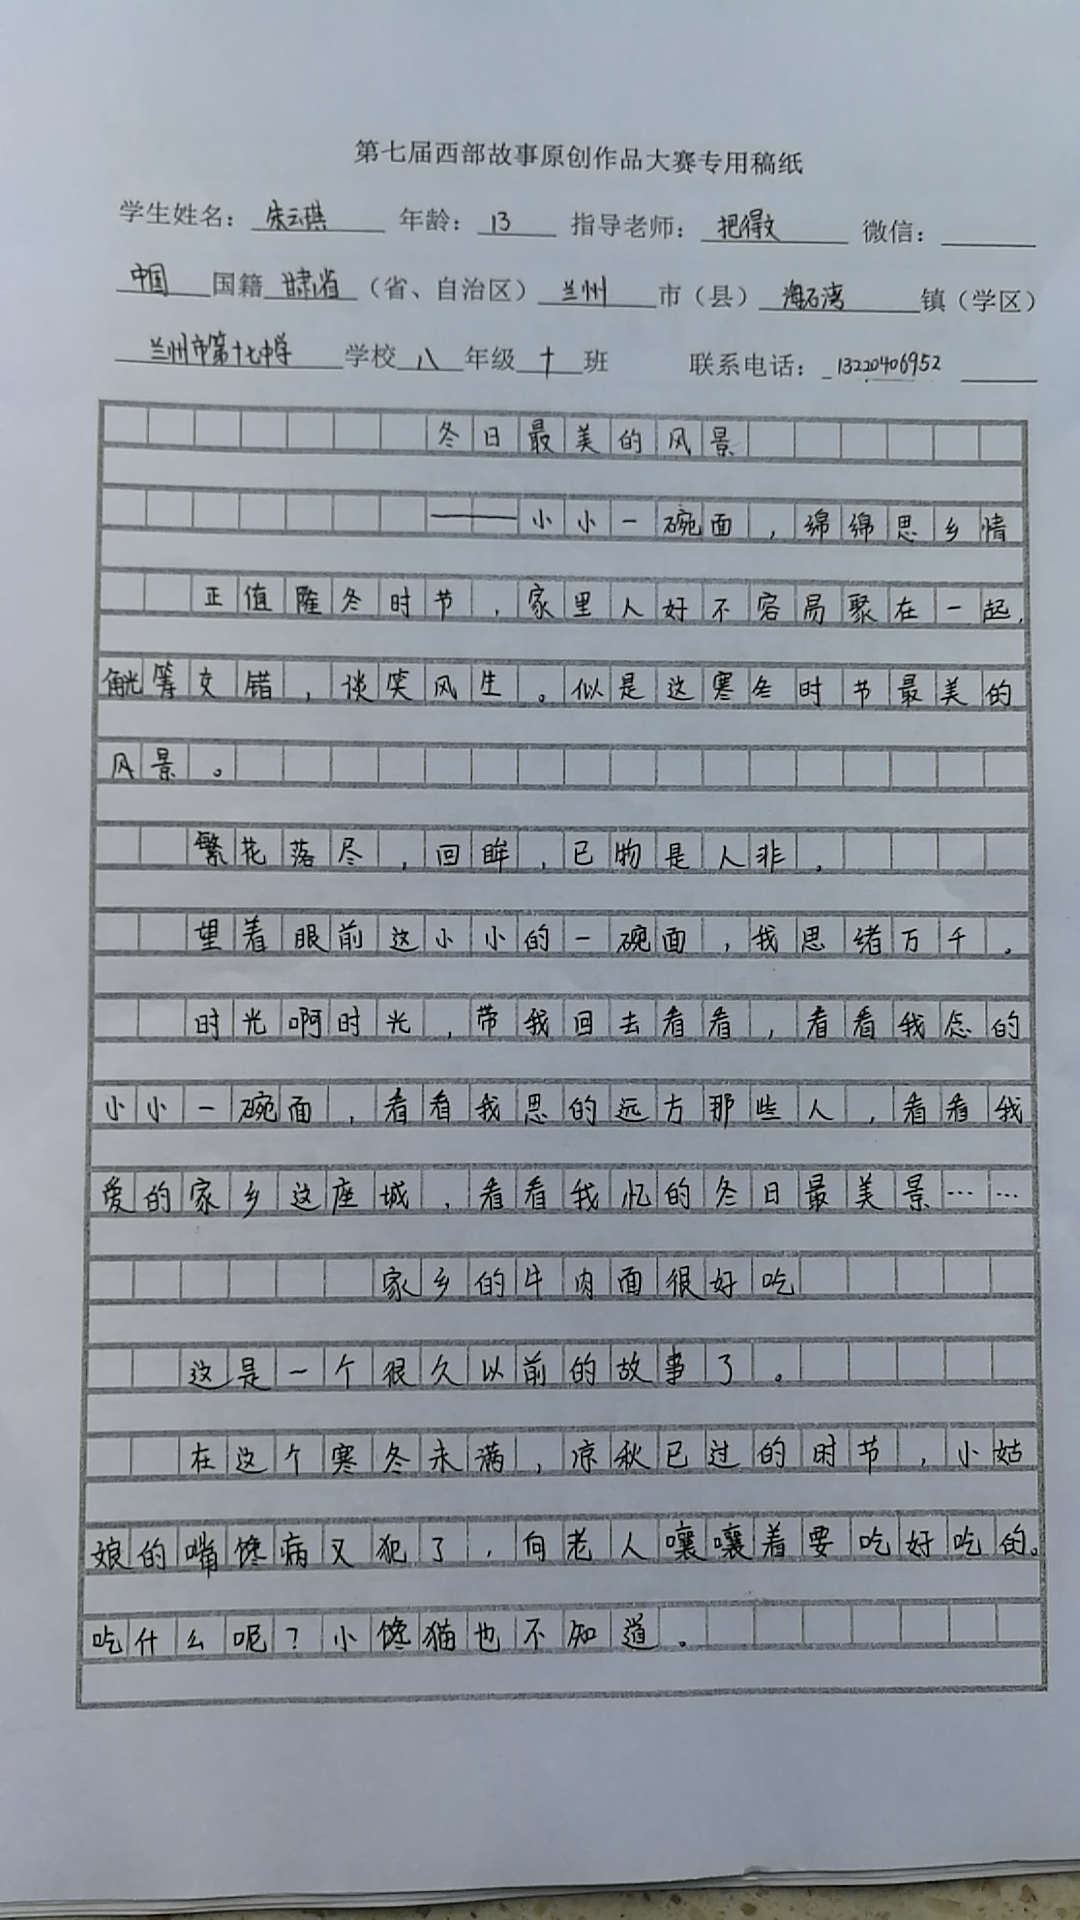 第七届西部故事原创作品大赛专用稿纸
学生姓名：朱云琪 年龄：13 指导老师：把得文 微信：
中国国籍甘肃省（省、自治区）兰州市（县）海石湾镇（学区）
兰州市第十七中学学校八年级十班 联系电话：13220406952
冬日最美的风景
——小小一碗面，绵绵思乡情
正值隆冬时节，家里人好不容易聚在一起，
觥筹交错，谈笑风生。似是这寒冬时节最美的
风景。
繁花落尽，回眸，已物是人非，
望着眼前这小小的一碗面，我思绪万千。
时光啊时光，带我回去看看，看看我念的
小小一碗面，看看我思的远方那些人，看看我
爱的家乡这座城，看看我忆的冬日最美景……
家乡的牛肉面很好吃
这是一个很久以前的故事了。
在这个寒冬未满，凉秋已过的时节，小姑
娘的嘴馋病又犯了，向老人嚷嚷着要吃好吃的。
吃什么呢？小馋猫也不知道。